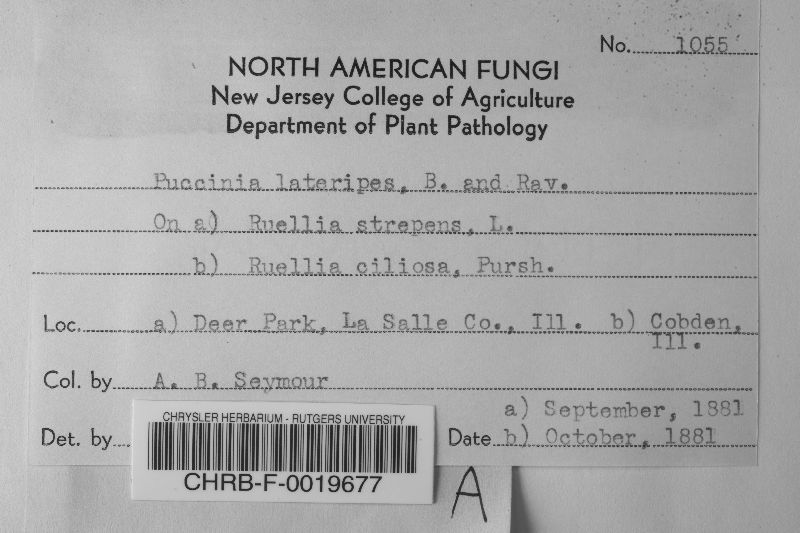 No. 1055
NORTH AMERICAN FUNGI
New Jersey College of Agriculture
Department of Plant Pathology
Puccinia lateripes, B. and Rav.
On a) Ruellia strepens, L.
b) Ruellia ciliosa, Pursh.
Loc. a) Deer Park, La Salle Co., Ill. b) Cobden,
Ill.
Col. by A. B. Seymour
a) September, 1881
Det. by Date b) October, 1881
CHRYSLER HERBARIUM - RUTGERS UNIVERSITY
CHRB-F-0019677
A